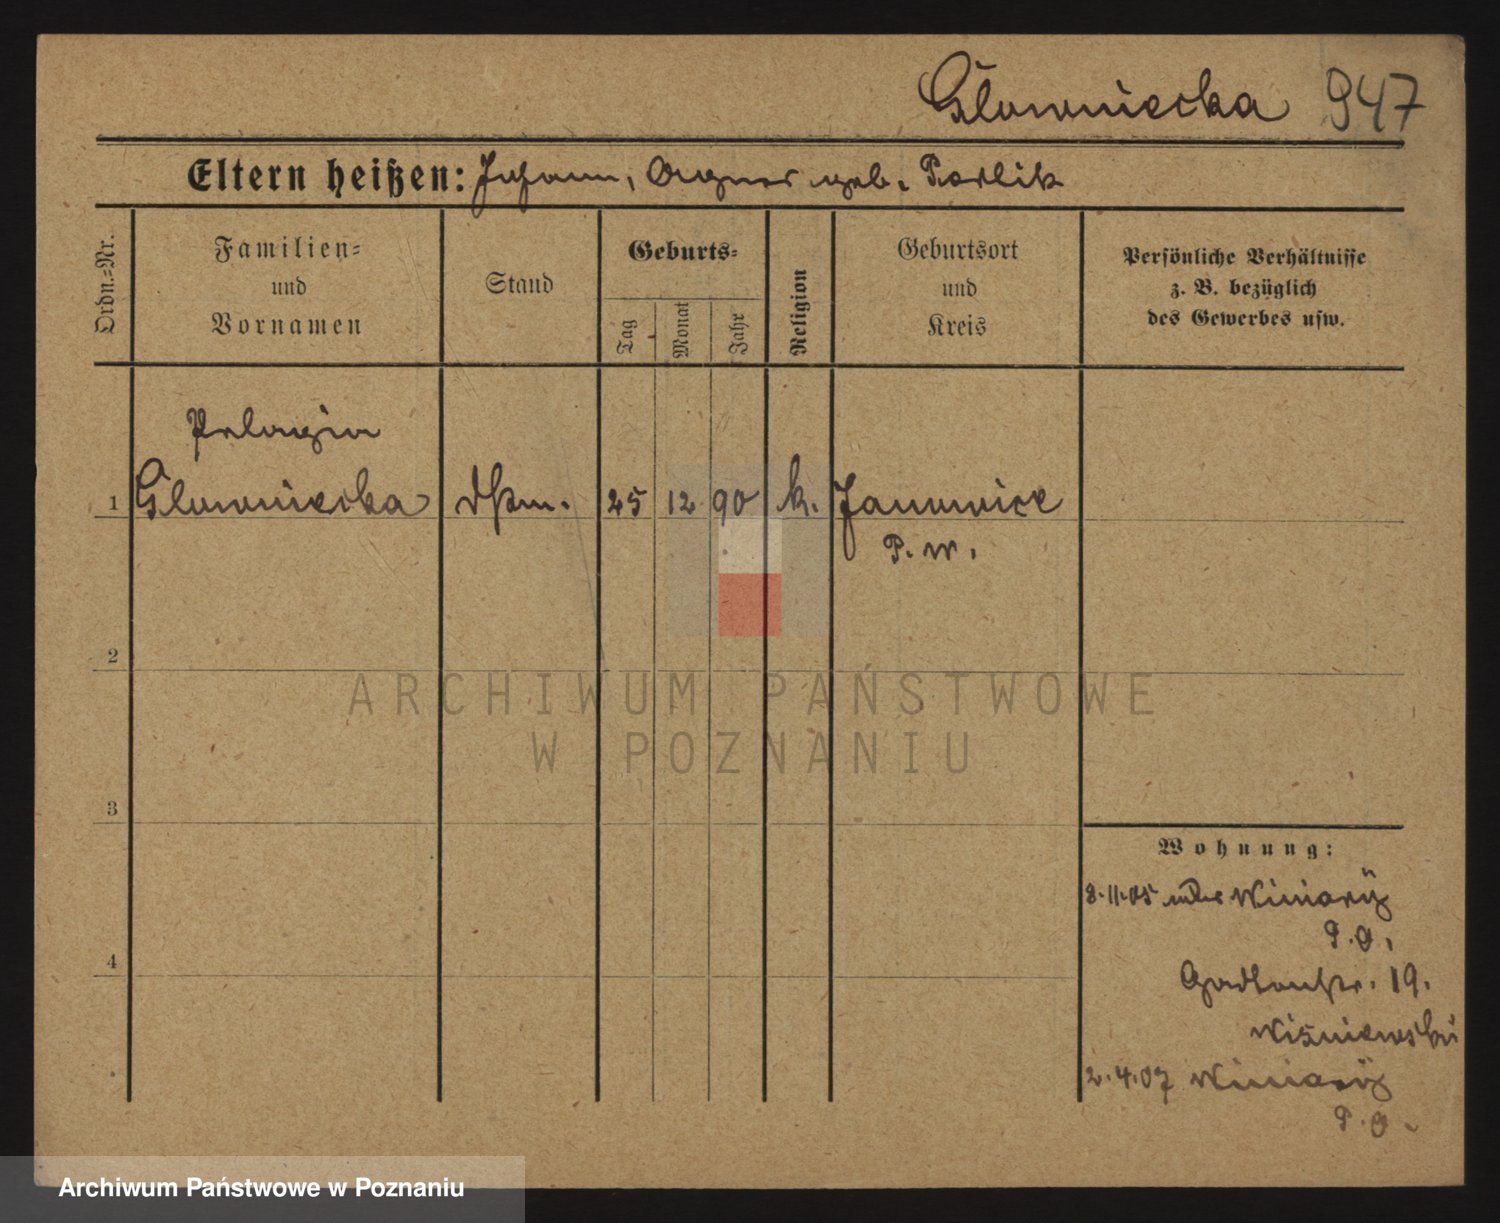 Głowniecka 947
Eltern heißen: Johann, Agnes geb. Pawlik
Ordn.=Nr.
Familien=
und
Vornamen
Stand
Geburts=
Tag
Monat
Jahr
Religion
Geburtsort
und
Kreis
Persönliche Verhältnisse
z. B. bezüglich
des Gewerbes usw.
Pelagia
1 Glowniecka 25 12 90 k. Janowice
P. W.
2
ARCHIWUM PAŃSTWOWE
W POZNANIU
3
Wohnung:
8.11.05 Winiary
P. O.
4
19.
Wiśniewski
2.4.07 Winiary
P. O.
Archiwum Państwowe w Poznaniu